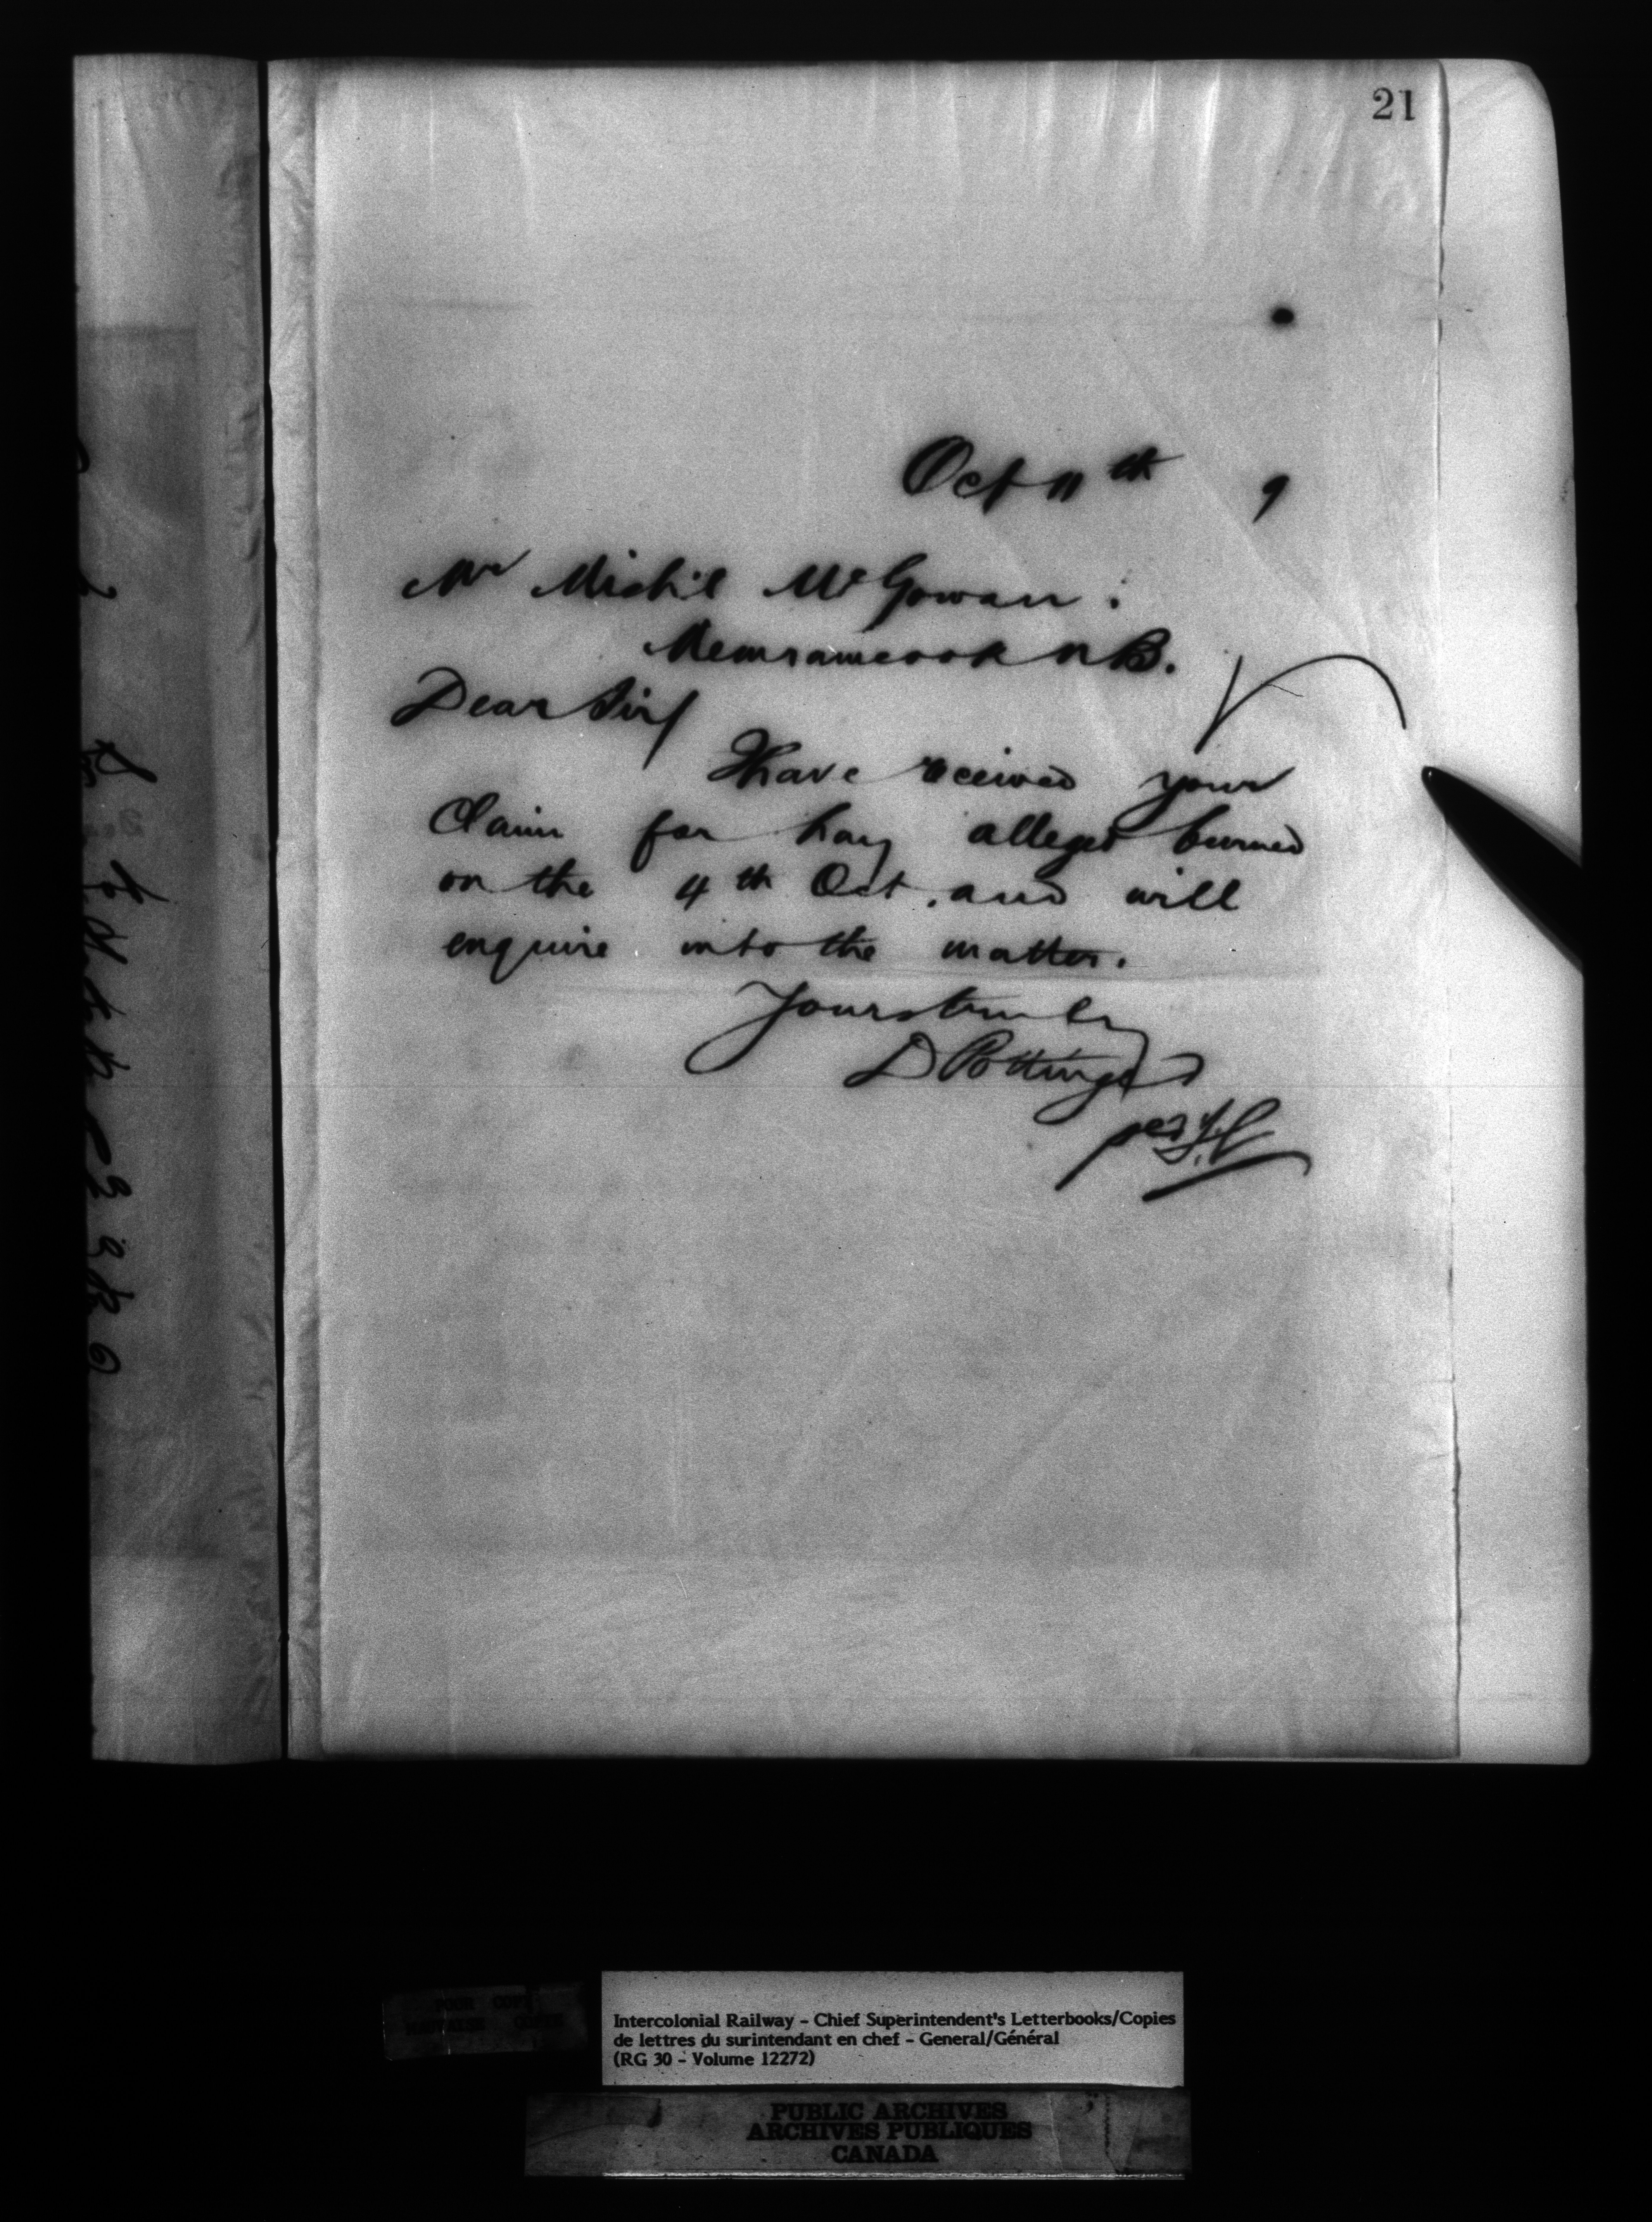 21
Oct 11th 9
Mr Mich'l McGowan.
Memramcook N B.
Dear Sir/
Have received your
Claim for hay alleged burned
on the 4th Oct. and will
enquire into the matter.
Yours truly
D Pottinger
per
Intercolonial Railway - Chief Superintendent's Letterbooks/Copies
de lettres du surintendant en chef - General/Général
(RG 30 - Volume 12272)
PUBLIC ARCHIVES
ARCHIVES PUBLIQUES
CANADA